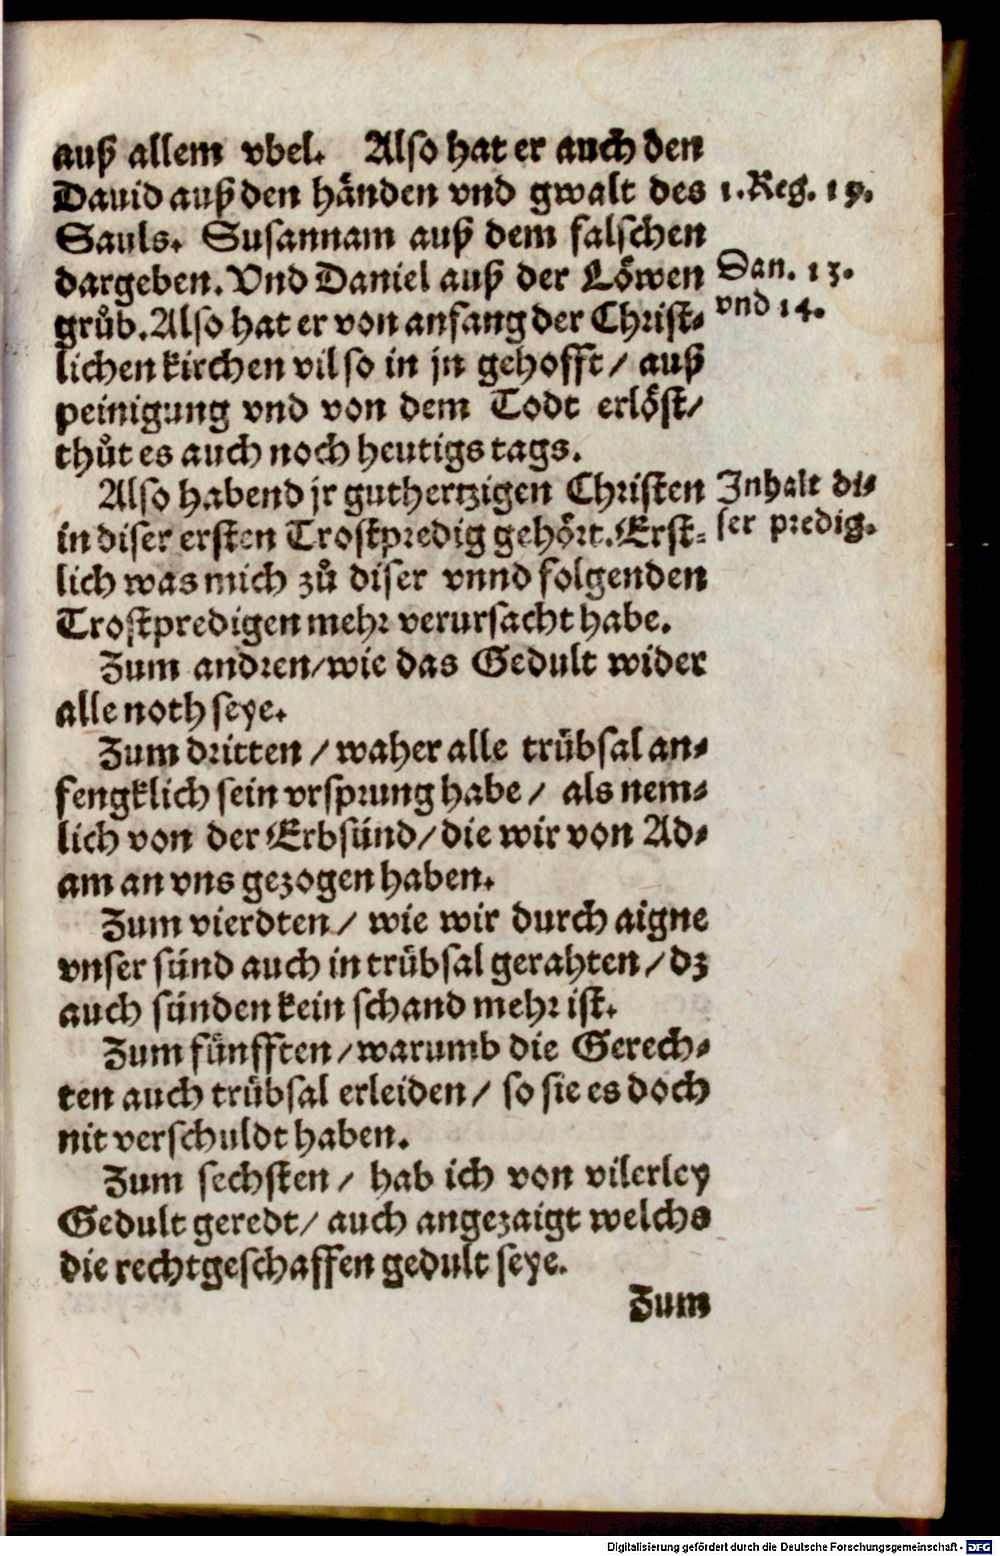 auß allem vbel. Also hat er auch den
Dauid auß den händen vnd gwalt des
1. Reg. 19.
Sauls. Susannam auß dem falschen
dargeben. Vnd Daniel auß der Löwen
Dan. 13.
vnd 14.
grůb. Also hat er von anfang der Christ-
lichen kirchen vil so in jn gehofft / auß
peinigung vnd von dem Todt erlöst /
thůt es auch noch heutigs tags.
Also habend jr guthertzigen Christen
Inhalt di-
in diser ersten Trostpredig gehört. Erst-
ser predig.
lich was mich zů diser vnnd folgenden
Trostpredigen mehr verursacht habe.
Zum andren / wie das Gedult wider
alle noth seye.
Zum dritten / waher alle trübsal an-
fengklich sein vrsprung habe / als nem-
lich von der Erbsünd / die wir von Ad-
am an vns gezogen haben.
Zum vierdten / wie wir durch aigne
vnser sünd auch in trübsal gerahten / dz
auch sünden kein schand mehr ist.
Zum fünfften / warumb die Gerech-
ten auch trübsal erleiden / so sie es doch
nit verschuldt haben.
Zum sechsten / hab ich von vilerley
Gedult geredt / auch angezaigt welchs
die rechtgeschaffen gedult seye.
Zum
Digitalisierung gefördert durch die Deutsche Forschungsgemeinschaft - DFG